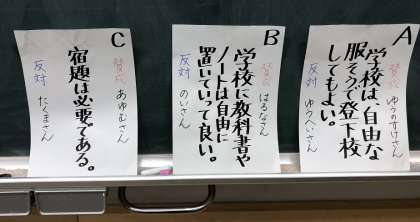 A
賛成 ゆうのすけさん
学校は、自由な
服そうで登下校
してもよい。
反対 ゆうへいさん
B
賛成 はるなさん
学校に教科書や
ノートは自由に
置いていって良い。
反対 のいさん
C
賛成 あゆむさん
宿題は必要である。
反対 たくまさん